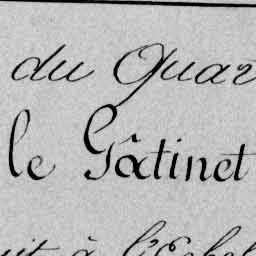 du Quar
le Gâtinet
it à l'Echel